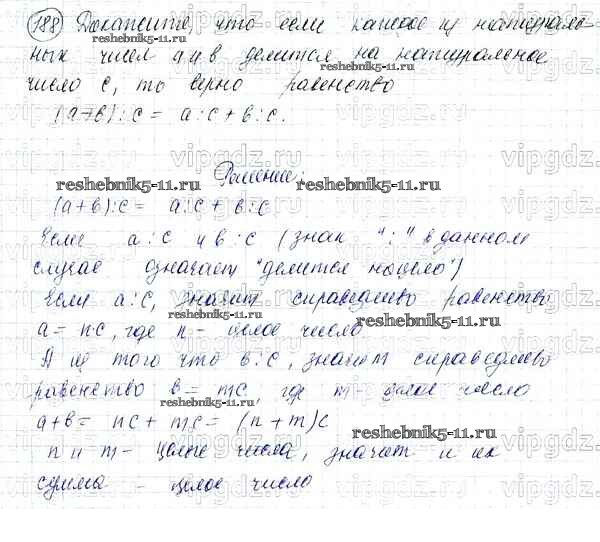 188 Докажите, что если каждое из натураль-
ных чисел a и b делится на натуральное
reshebnik5-11.ru
число c, то верно равенство
(a+b):c = a:c + b:c.
Решение:
reshebnik5-11.ru reshebnik5-11.ru
(a+b):c = a:c + b:c
Если a:c и b:c (знак ":" в данном
случае означает "делится нацело")
reshebnik5-11.ru
Если a:c, значит справедливо равенство
a = n·c, где n - целое число
reshebnik5-11.ru
А из того что b:c, значит справедливо
равенство b = mc, где m - целое число
reshebnik5-11.ru
a+b = nc + mc = (n+m)c
reshebnik5-11.ru
n и m - целые числа, значит и их
сумма - целое число
reshebnik5-11.ru
vipgdz.com